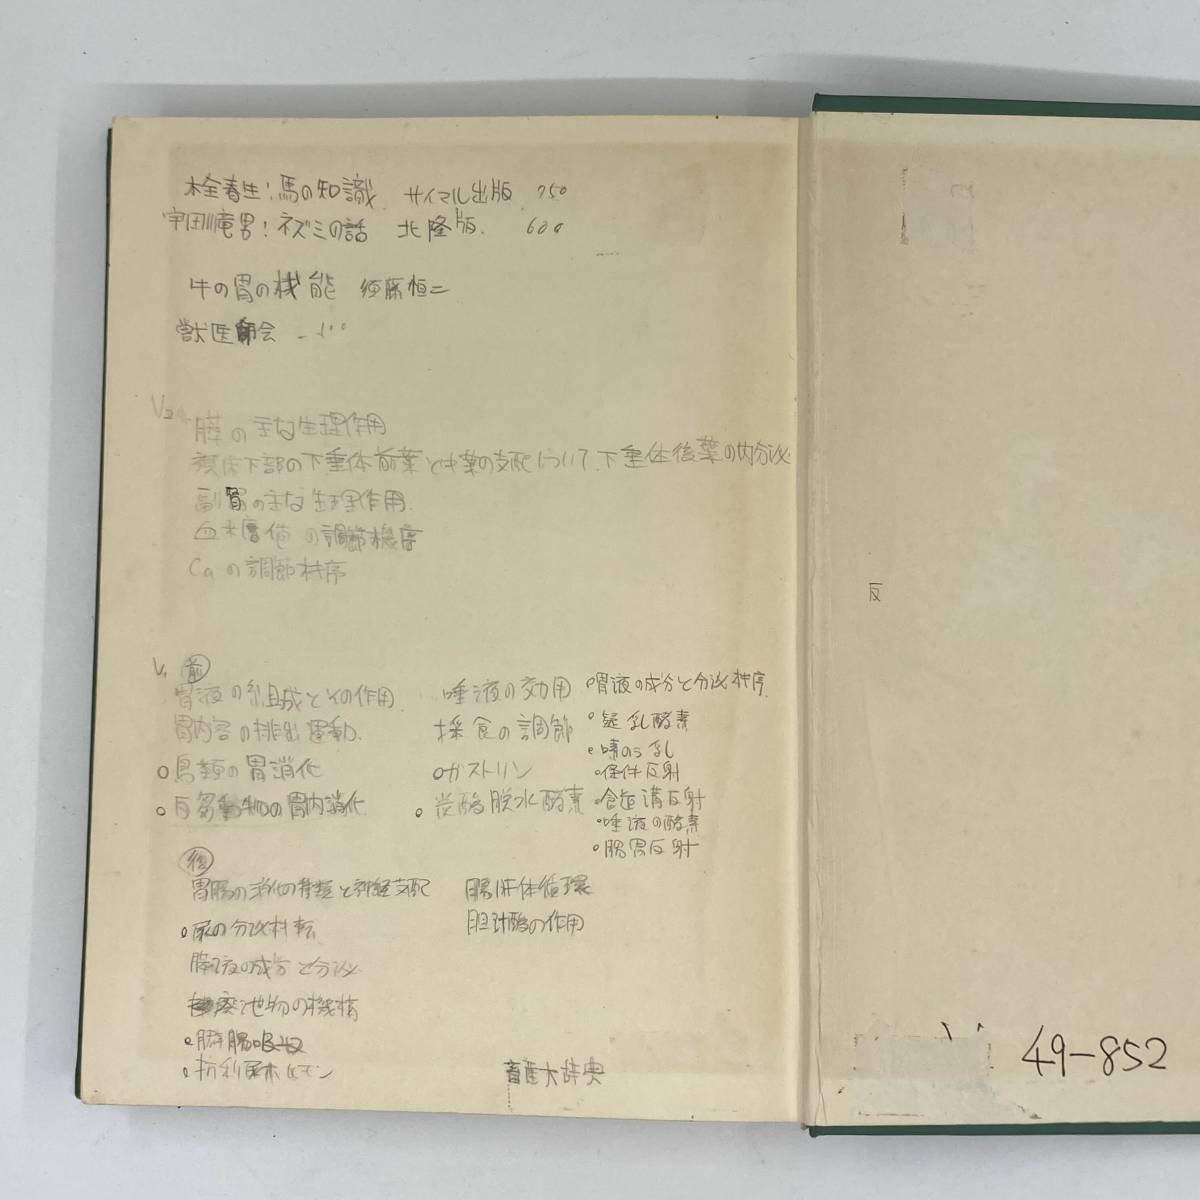 栓春生:馬の知識 サイマル出版. 750
宇田川竜男:ネズミの話 北隆版. 600
牛の胃の機能 須藤恒二
獣医師会
V2
膵の主な生理作用
視床下部の下垂体前葉と中葉の支配について.下垂体後葉の内分泌
副腎の主な生理作用.
血糖値の調節機序
Caの調節機序
V1 前
胃液の組成とその作用.
胃内容の排出運動.
鳥類の胃消化
反芻動物の胃内消化
唾液の効用
採食の調節
ガストリン
炭酸脱水酵素
胃液の成分と分泌機序.
凝乳酵素
哺乳
条件反射
食道溝反射
唾液の酵素
腸胃反射
後
胃腸の消化の種類と神経支配
尿の分泌機転
膵液の成分と分泌
排泄物の機構
腸吸収
抗利尿ホルモン
腸肝体循環
胆汁酸の作用
畜産大辞典
反
49-852